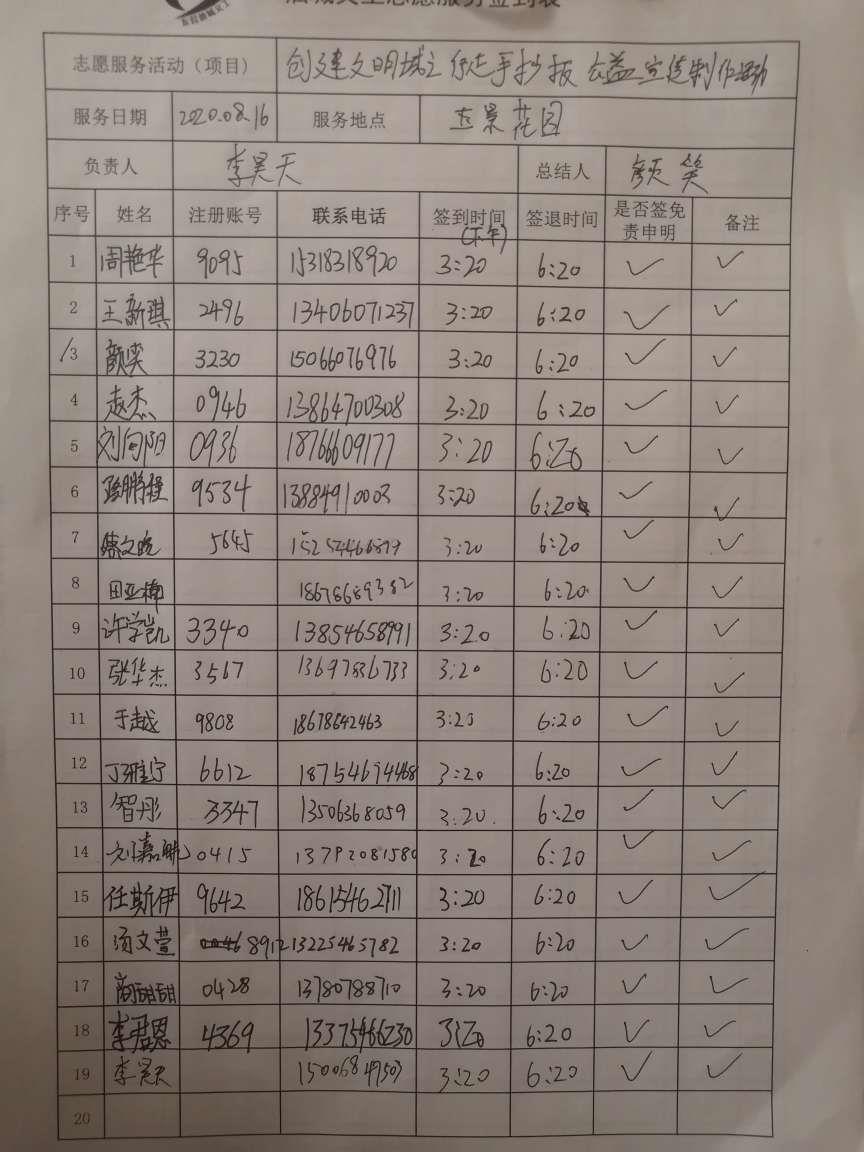 志愿服务活动（项目） 创建文明城之 手抄报 公益宣传制作活动
服务日期 2020.08.16 服务地点 志景花园
负责人 李昊天 总结人 颜笑
序号 姓名 注册账号 联系电话 签到时间(下午) 签退时间 是否签免责申明 备注
1 周艳华 9095 15318318920 3:20 6:20 ✓ ✓
2 王新琪 2496 13406071237 3:20 6:20 ✓ ✓
3 颜奕 3230 15066076976 3:20 6:20 ✓ ✓
4 赵杰 0946 13864700308 3:20 6:20 ✓ ✓
5 刘向阳 0936 18766609177 3:20 6:20 ✓ ✓
6 9534 13884910003 3:20 6:20 ✓ ✓
7 5645 3:20 6:20 ✓ ✓
8 18678689382 3:20 6:20 ✓ ✓
9 许学凯 3340 13854658991 3:20 6:20 ✓ ✓
10 张华杰 3567 13697836733 3:20 6:20 ✓ ✓
11 于越 9808 18678642463 3:20 6:20 ✓ ✓
12 丁雅宁 6612 18754694468 3:20 6:20 ✓ ✓
13 智彤 3347 13506368059 3:20 6:20 ✓ ✓
14 0415 13792081580 3:20 6:20 ✓ ✓
15 任斯伊 9642 18615462711 3:20 6:20 ✓ ✓
16 汤文萱 8912 13225465782 3:20 6:20 ✓ ✓
17 商甜甜 0428 13780788710 3:20 6:20 ✓ ✓
18 李君恩 4369 13375466230 3:20 6:20 ✓ ✓
19 李昊天 15006849503 3:20 6:20 ✓ ✓
20